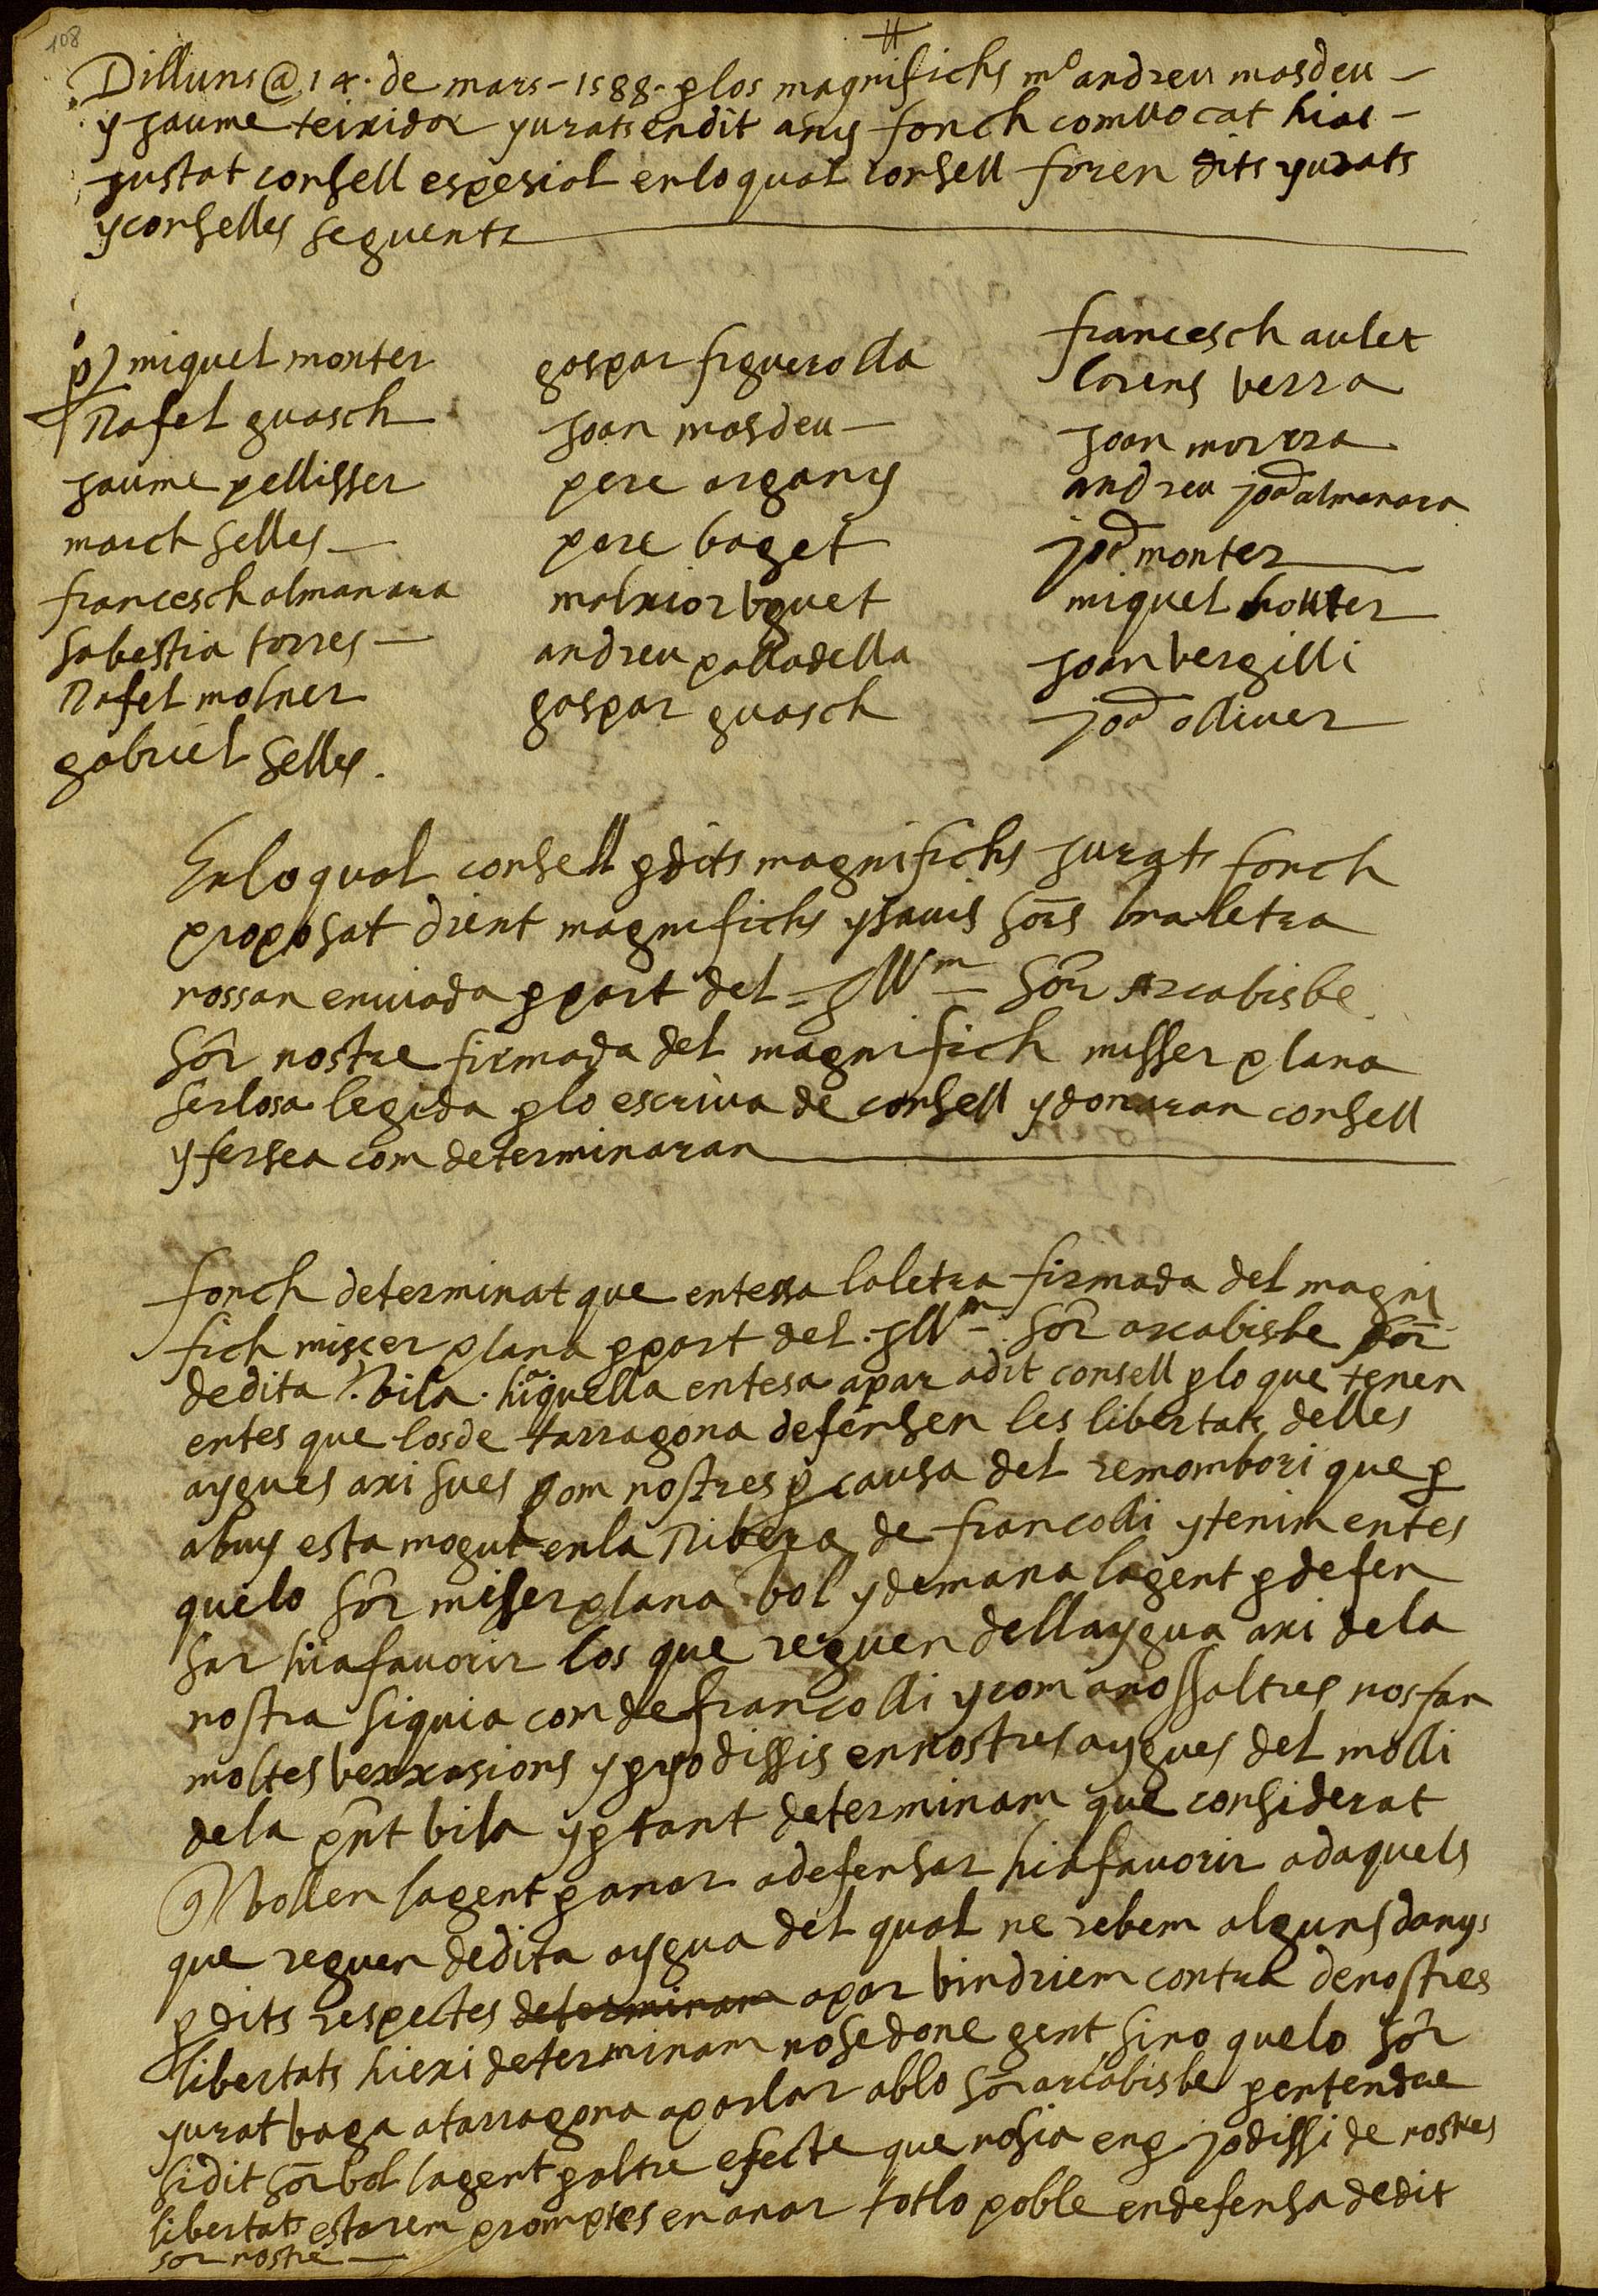 108
Dilluns @ 14 · de mars – 1588 – p los magnifichs mº andreu masdeu –
y jaume teixidor yurats en dit any fonch comvocat hiai –
justat consell espesial en lo qual consell foren dits yurats
y consellés seguents
pº miquel monter
Rafel guasch
jaume pellisser
march selles –
francesch almanara
sabestia torres –
Rafel molner
gabriel selles .
gaspar figuerolla
joan masdeu –
pere organy
pere baget
malxior buguet
andreu palladella
gaspar guasch
francesch aulet
lorens verra
joan morera
andreu joã almanara
joã monter
miquel
joan vergilli
joã olliuer
En lo qual consell p dits magnifichs jurats fonch
proposat dient magnifichs y sauis sõrs una letra
nossan enuiada p part del – jllm – sõr Arcabisbe
sõr nostre firmada del magnifich misser plana
serlosa legida p lo escriua de consell y donaran consell
y fersea com determinaran
fonch determinat que entessa la letra firmada del magni
fich misçer plana p part del · jllm – sõr arcabisbe sõr
de dita · vila · hi aquella entesa apar a dit consell p lo que tenen
entes que los de tarragona defensen les libertats delles
aygues axi sues com nostres p causa del remombori que p
abuy esta mogut en la Ribera de francolli y tenim entes
que lo sõr miser plana vol y demana la gent p defen
sar hi afauorir los que reguen dell aygua axi de la
nostra siquia com de francolli y com a nossaltres nos fan
moltes vexxasions y p yodissis en nostres aygues del molli
de la pñt vila y p tant determinam que considerat
vollen la gent p anar a defensar hi afauorir a daquels
que reguen de dita aygua del qual ne rebem alguns danys
p dits respectes determinam apar vindriem contra de nostres
libertats hi exi determinam no se done gent sino que lo sõr
yurat vaga a tarragona a parlar ab lo sõr arcabisbe p entendre
si dit sõr vol la gent p altre efecte que no sia en p jodissi de nostres
libertats estarem promptes en anar tot lo poble en defensa de dit
sõr nostre –